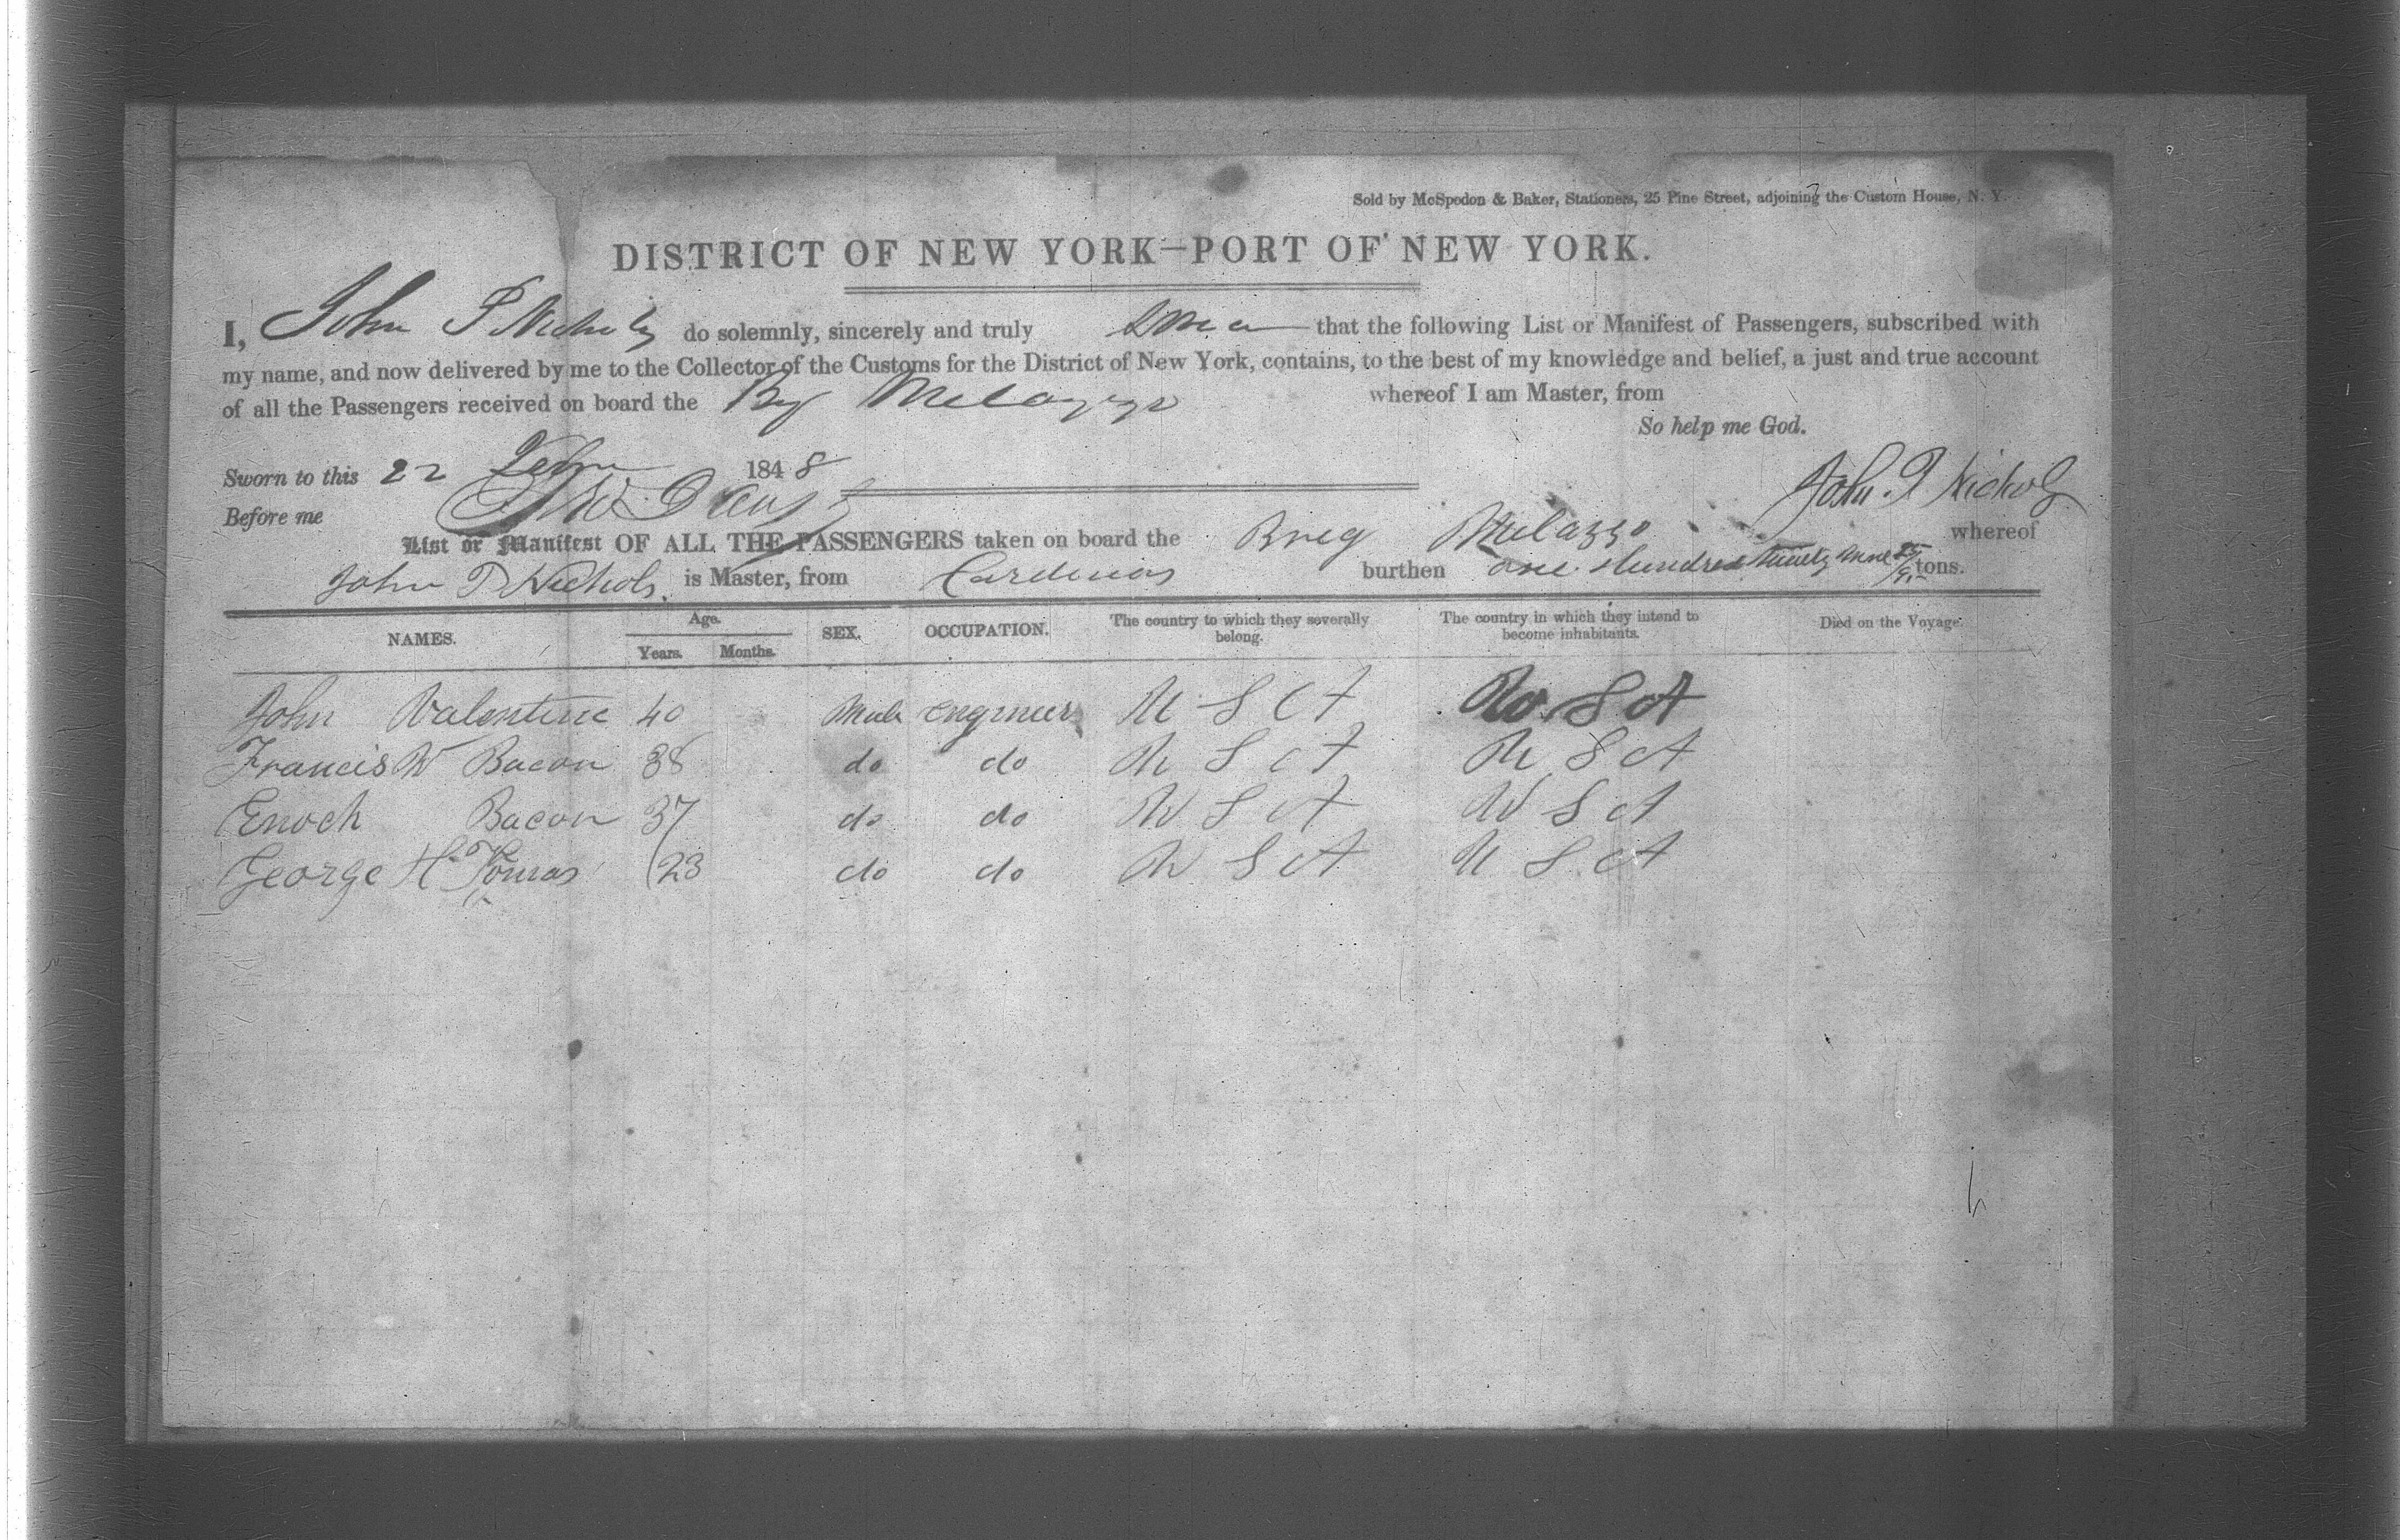 Sold by McSpedon & Baker, Stationers, 25 Pine Street, adjoining the Custom House, N. Y.
DISTRICT OF NEW YORK—PORT OF NEW YORK.
I, John P Nichols do solemnly, sincerely and truly that the following List or Manifest of Passengers, subscribed with
my name, and now delivered by me to the Collector of the Customs for the District of New York, contains, to the best of my knowledge and belief, a just and true account
of all the Passengers received on board the Brig Melazzo whereof I am Master, from
So help me God.
Sworn to this 22 Febru 1848
John. P Nichols
Before me
List or Manifest OF ALL THE PASSENGERS taken on board the Brig Melazzo whereof
John P Nichols. is Master, from Cardenas burthen one Hundred Ninety nine tons.
NAMES. Age. Years. Months. SEX. OCCUPATION. The country to which they severally belong. The country in which they intend to become inhabitants. Died on the Voyage.
John Valentine 40 Male Engineer U S A U S A
Francis W Bacon 38 do do U S A U S A
Enoch Bacon 37 do do U S A U S A
George H Tomas 23 do do U S A U S A